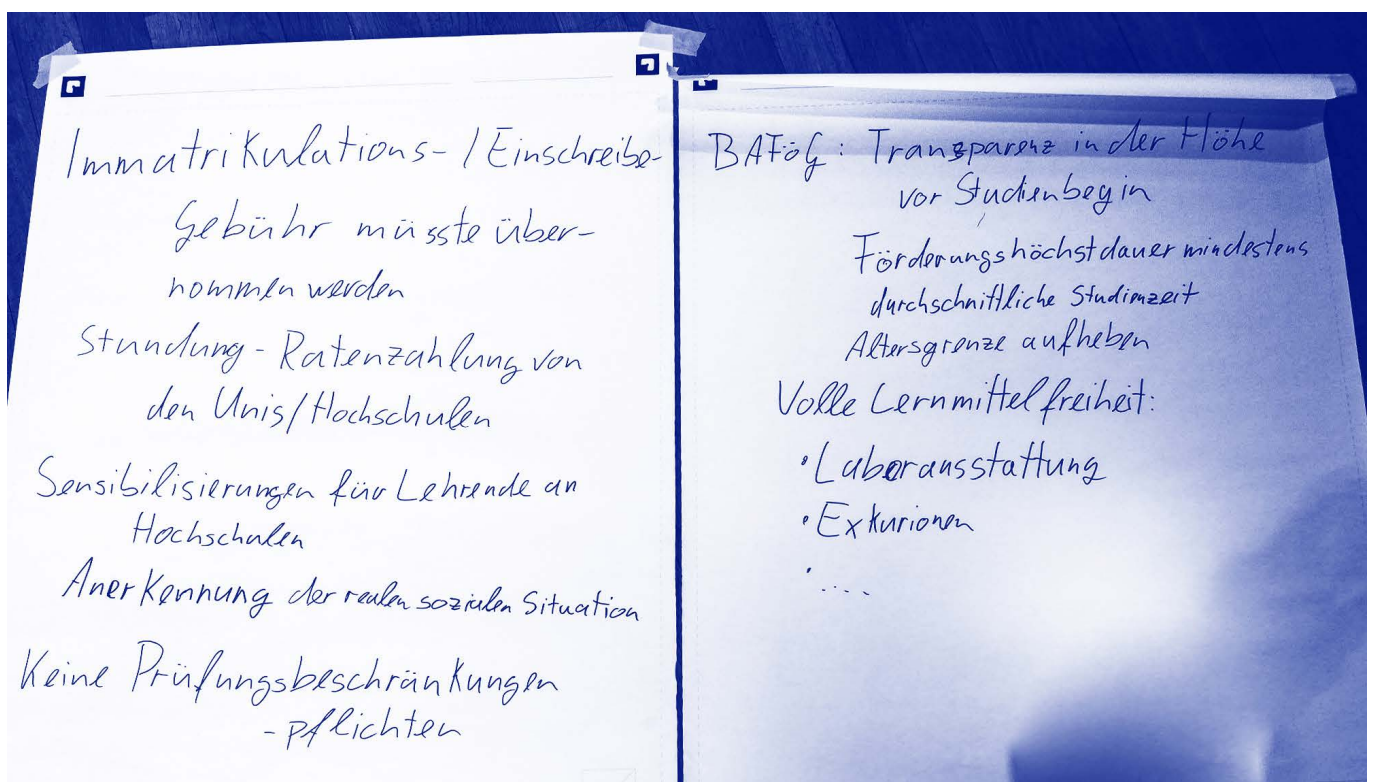 Immatrikulations-/Einschreibe-
Gebühr müsste über-
nommen werden
Stundung - Ratenzahlung von
den Unis/Hochschulen
Sensibilisierungen für Lehrende an
Hochschulen
Anerkennung der realen sozialen Situation
Keine Prüfungsbeschränkungen
- pflichten
BAFöG: Transparenz in der Höhe
vor Studienbegin
Förderungshöchstdauer mindestens
durchschnittliche Studienzeit
Altersgrenze aufheben
Volle Lernmittelfreiheit:
• Laborausstattung
• Exkurionen
• ....